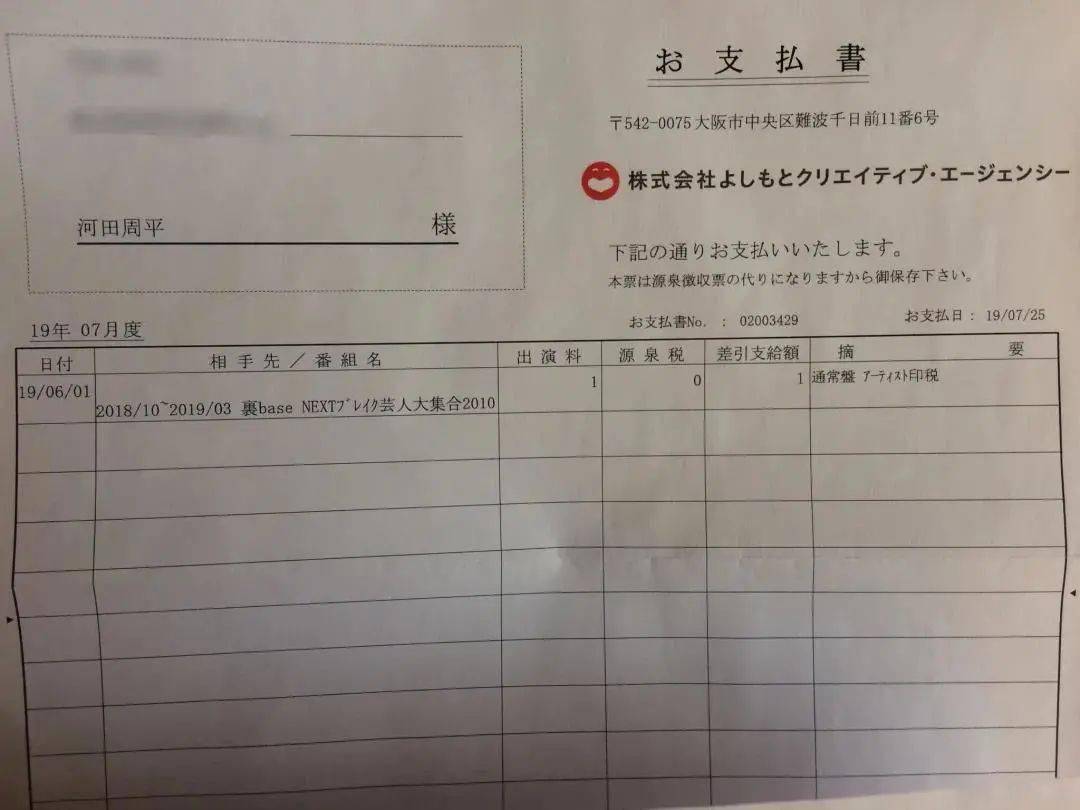 お支払書
〒542-0075 大阪市中央区難波千日前11番6号
株式会社よしもとクリエイティブ・エージェンシー
河田周平 様
下記の通りお支払いいたします。
本票は源泉徴収票の代りになりますから御保存下さい。
19年 07月度 お支払書No. : 02003429 お支払日 : 19/07/25
日付 相手先／番組名 出演料 源泉税 差引支給額 摘要
19/06/01 1 0 1 通常盤 ｱｰﾃｨｽﾄ印税
2018/10~2019/03 裏base NEXTﾌﾞﾚｲｸ芸人大集合2010